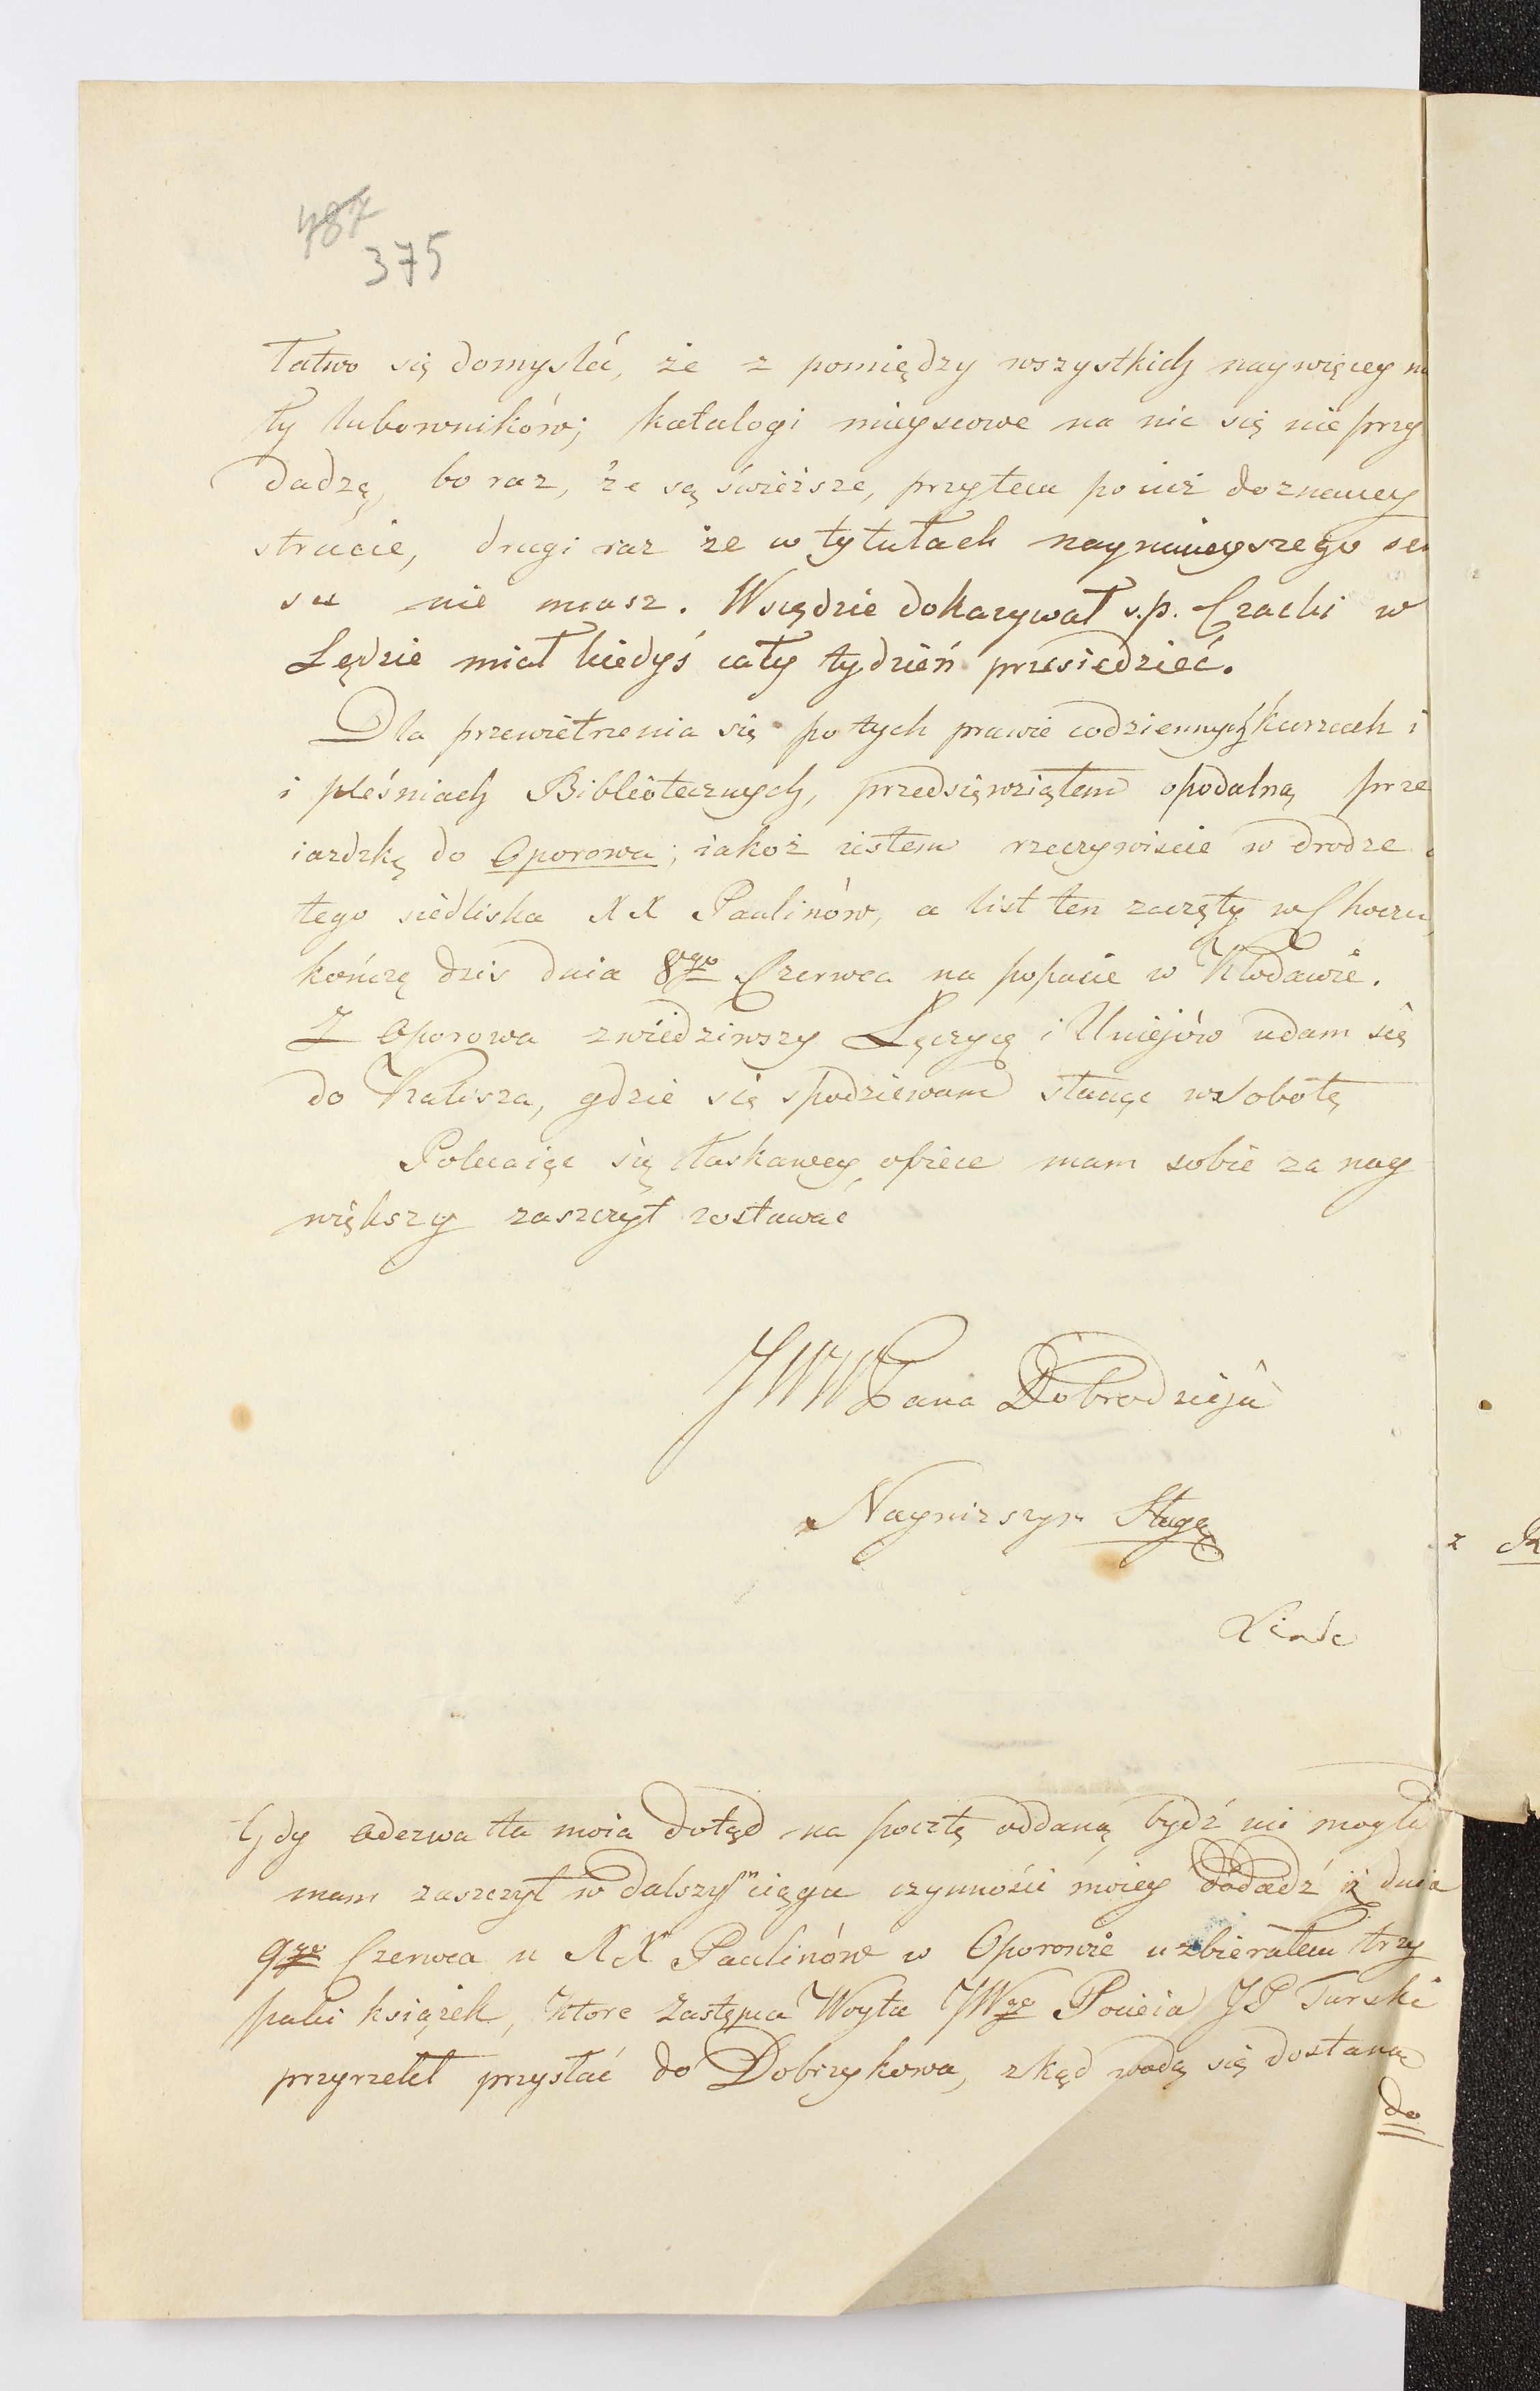 487
375
łatwo się domyslać, że z pomiędzy wszystkich naywięcey m
ły lubowników; katalogi mieyscowe na nic się nie przy
dadzą, bo raz, że są świeższe, przytem po iuż doznaney
stracie, drugi raz że w tytułach naymnieyszego sen
su nie masz. Wszędzie dokazywał s.p. Czacki w
Lędzie miał kiedyś cały tydzień przesiedzieć.
Dla przewietrzenia się po tych prawie codziennych kurzach i
i pleśniach Bibliotecznych, przedsięwziąłem opodalną prze
iazdzkę do Oporowa; iakoż iestem rzeczywiscie w drodze
tego siedliska XX Paulinów, a list ten zaczęty w Choczu,
kończę dzis dnia 8go Czerwca na popasie w Kłodawie.
Z Oporowa zwiedziwszy Łęczycę i Uniejów udam się
do Kalisza, gdzie się spodziewam stanąć w Sobotę
Polecaiąc się łaskawey opiece mam sobie za nay
większy zaszczyt zostawać
JWW Pana Dobrodzieja
Nayniższym Sługą
Linde
Gdy Odezwa ta moia dotąd na pocztę oddaną bydź nie mogła
mam zaszczyt w dalszym ciągu czynności moiey dodadź iż dnia
9go Czerwca u XX Paulinów w Oporowie uzbierałem trzy
paki książek, które Zastępca Woyta JWgo Pocieia JP Turski
przyrzekł przysłać do Dobrzykowa, zkąd wodą się dostaną
do